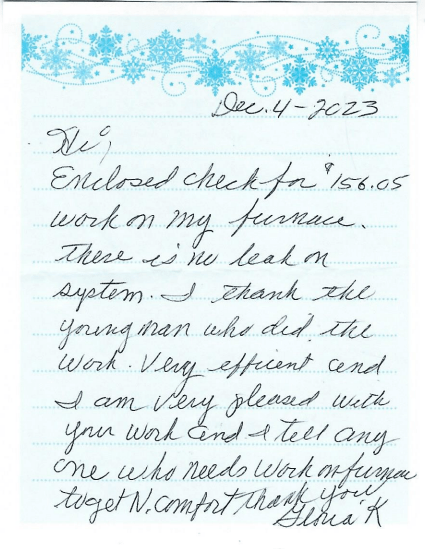 Dec. 4-2023
Hi,
Enclosed check for $156.05
work on my furnace.
there is no leak on
system. I thank the
young man who did the
work. Very efficent and
I am very pleased with
your work and I tell any
one who needs work on furnace
to get N. Comfort Thank you
Gloria K